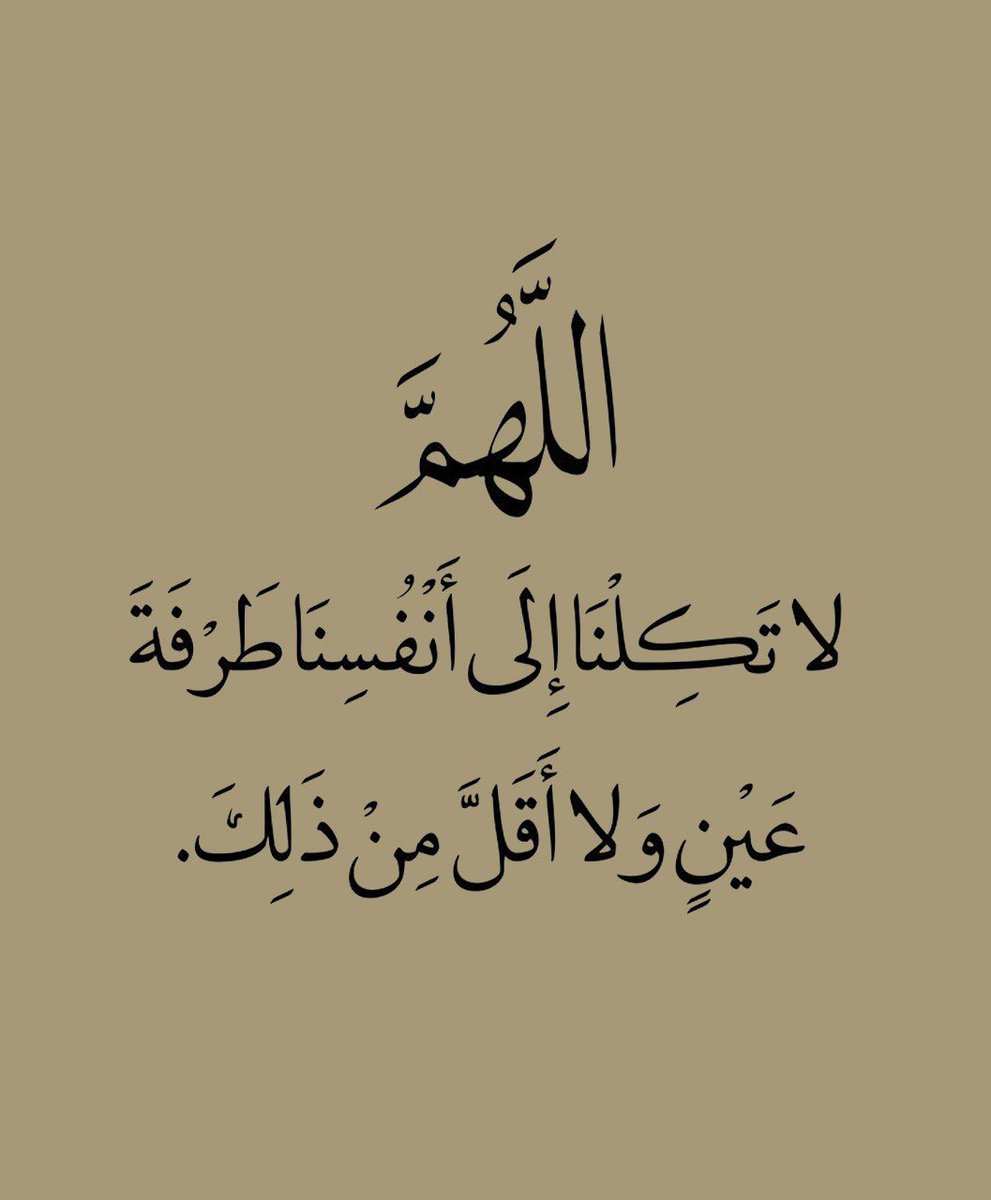 اللَّهُمَّ
لا تَكِلْنَا إِلَى أَنْفُسِنَا طَرْفَةَ
عَيْنٍ وَلا أَقَلَّ مِنْ ذَلِكَ.